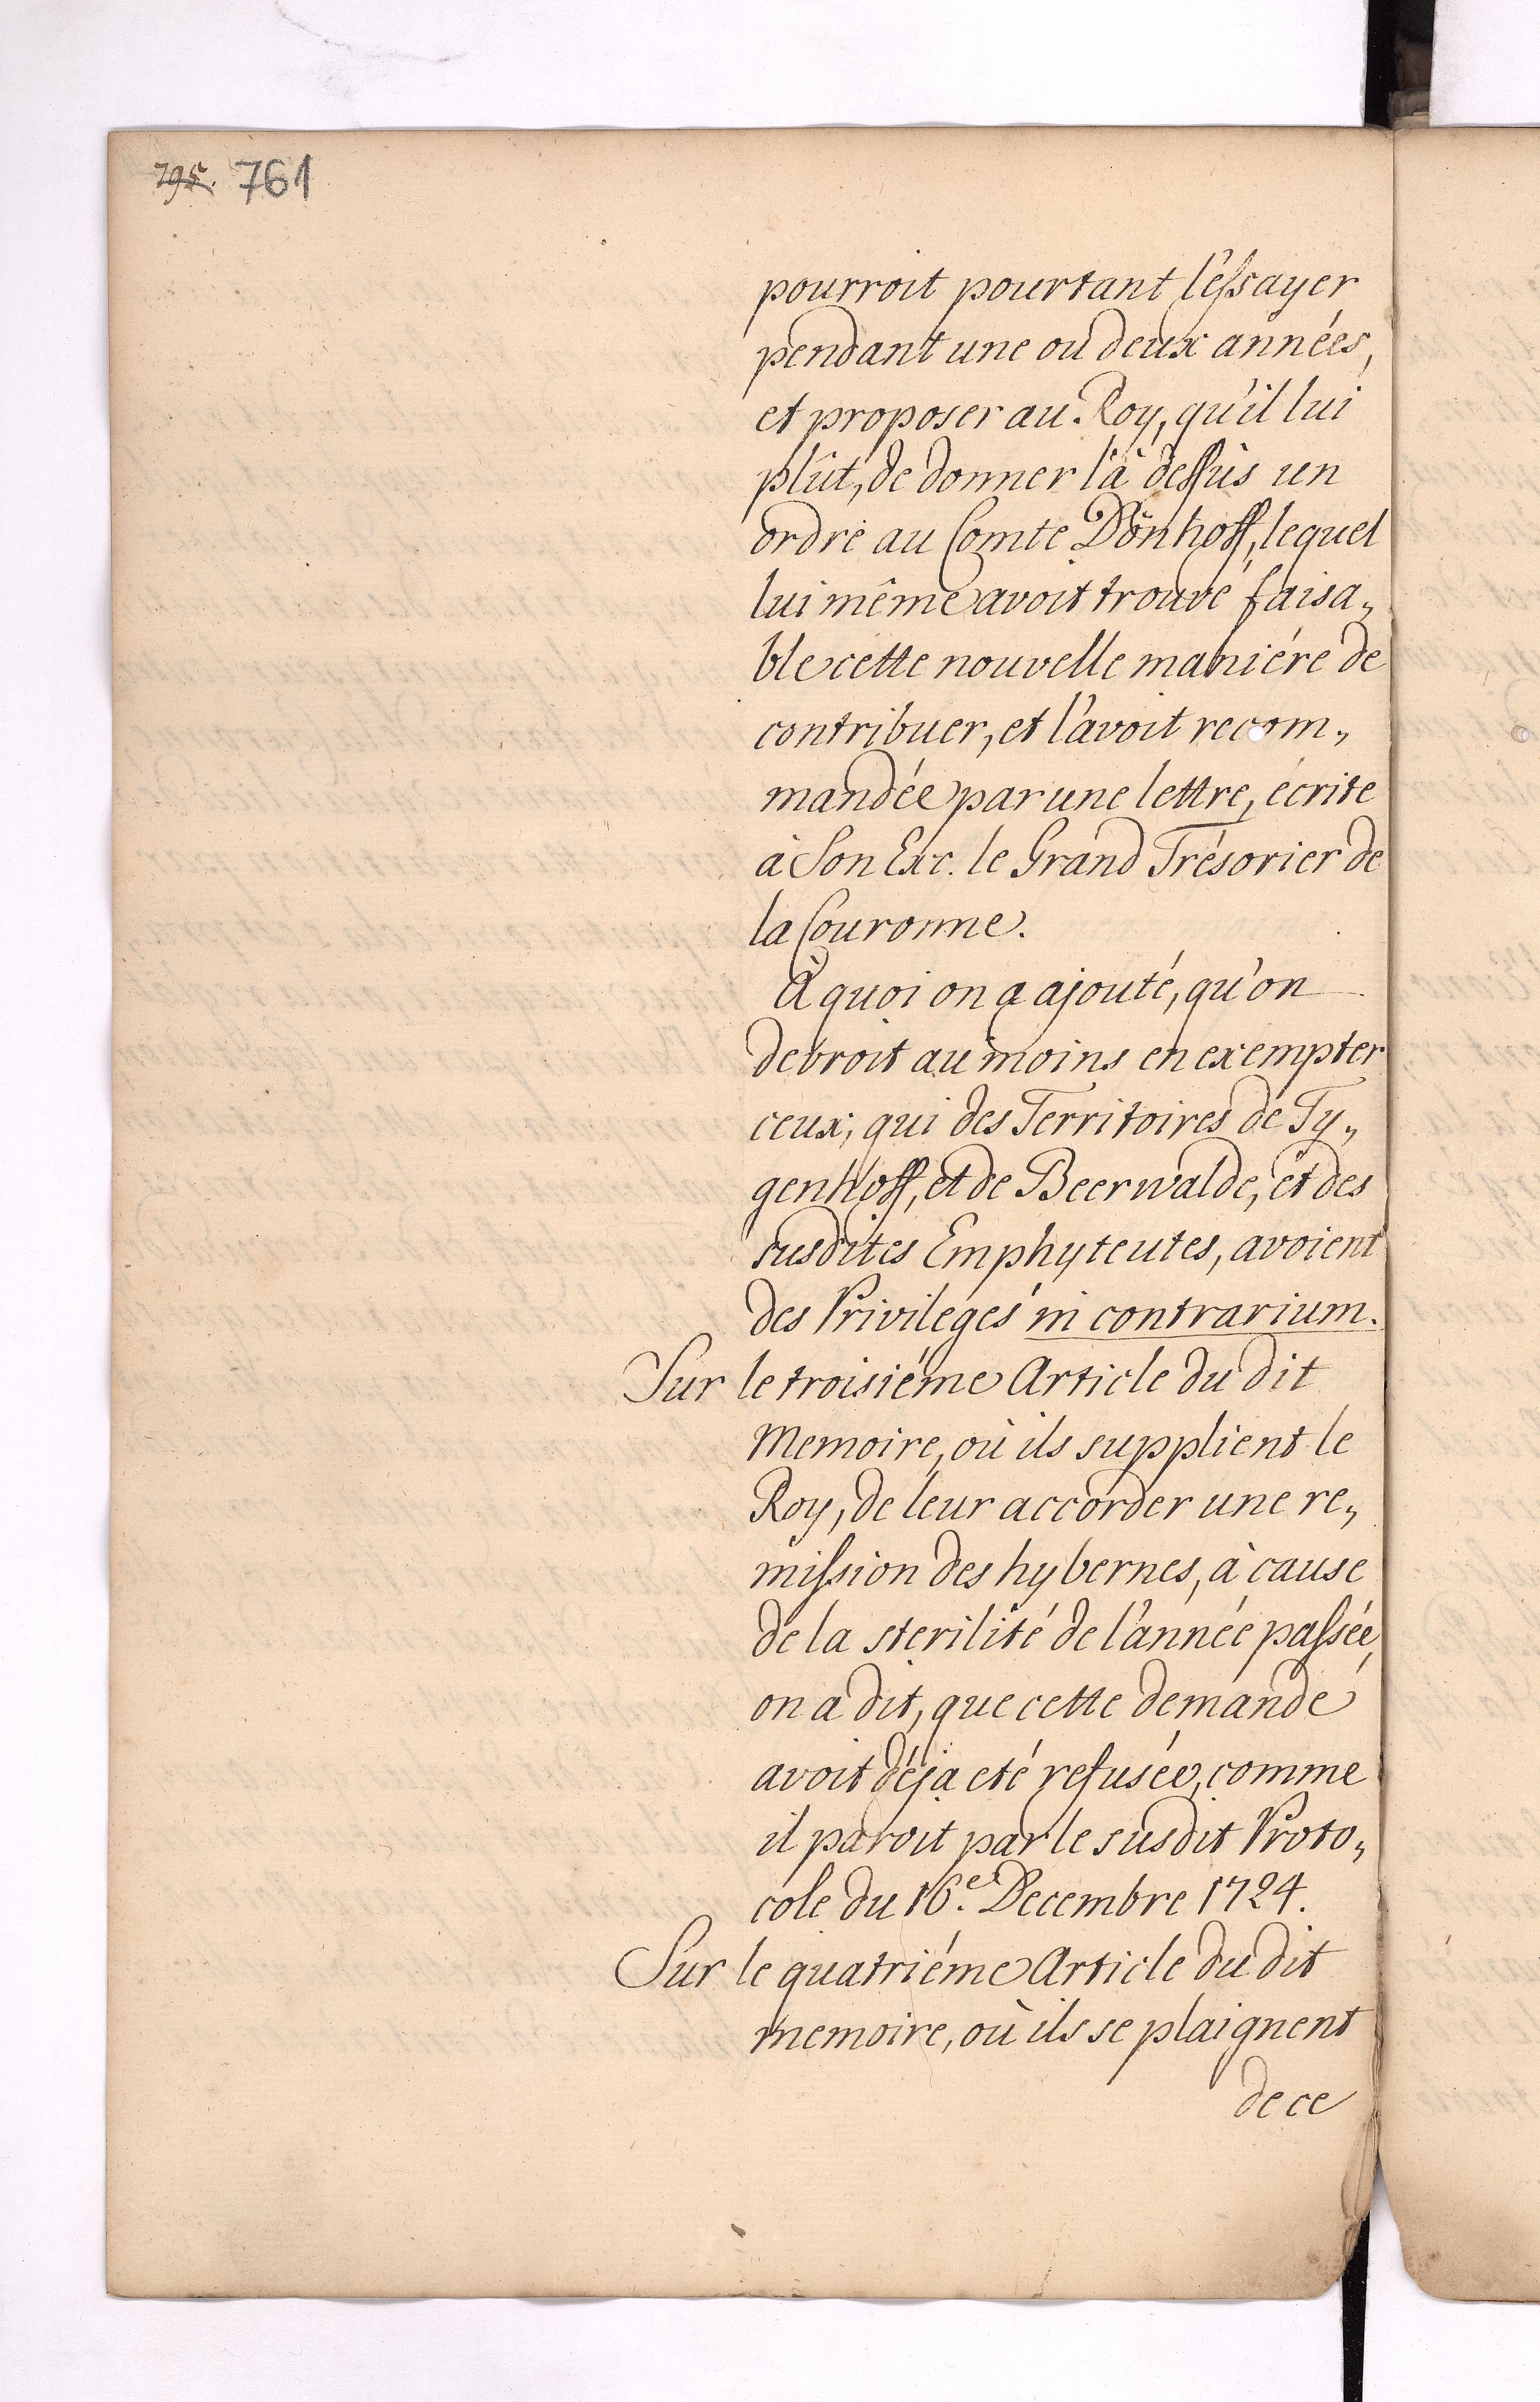 795. 761
pourroit pourtant l'eſsayer
pendant une ou deux années,
et proposer au Roy, qu'il lui
plût, de donner l'à deſſus un
ordre au Comte Dönhoff, lequel
lui même avoit trouvé faisa„
ble cette nouvelle maniére de
contribuer, et l'avoit recom„
mandée par une lettre, écrite
à Son Exc. le Grand Trésorier de
la Couronne.
À quoi on a ajouté, qu'on
devroit au moins en exempter
ceux, qui des Territoires de Ty„
genhoff, et de Beerwalde, et des
susdites Emphyteutes, avoient
des Privileges in contrarium.
Sur le troisiéme Article du dit
Memoire, où ils supplient le
Roy, de leur accorder une re„
miſsion des hybernes, à cause
de la sterilité de l'année paſsée,
on a dit, que cette demande
avoit déja eté refusée, comme
il paroit par le susdit Proto„
cole du 16.e Decembre 1724.
Sur le quatriéme Article du dit
memoire, où ils se plaignent
de ce